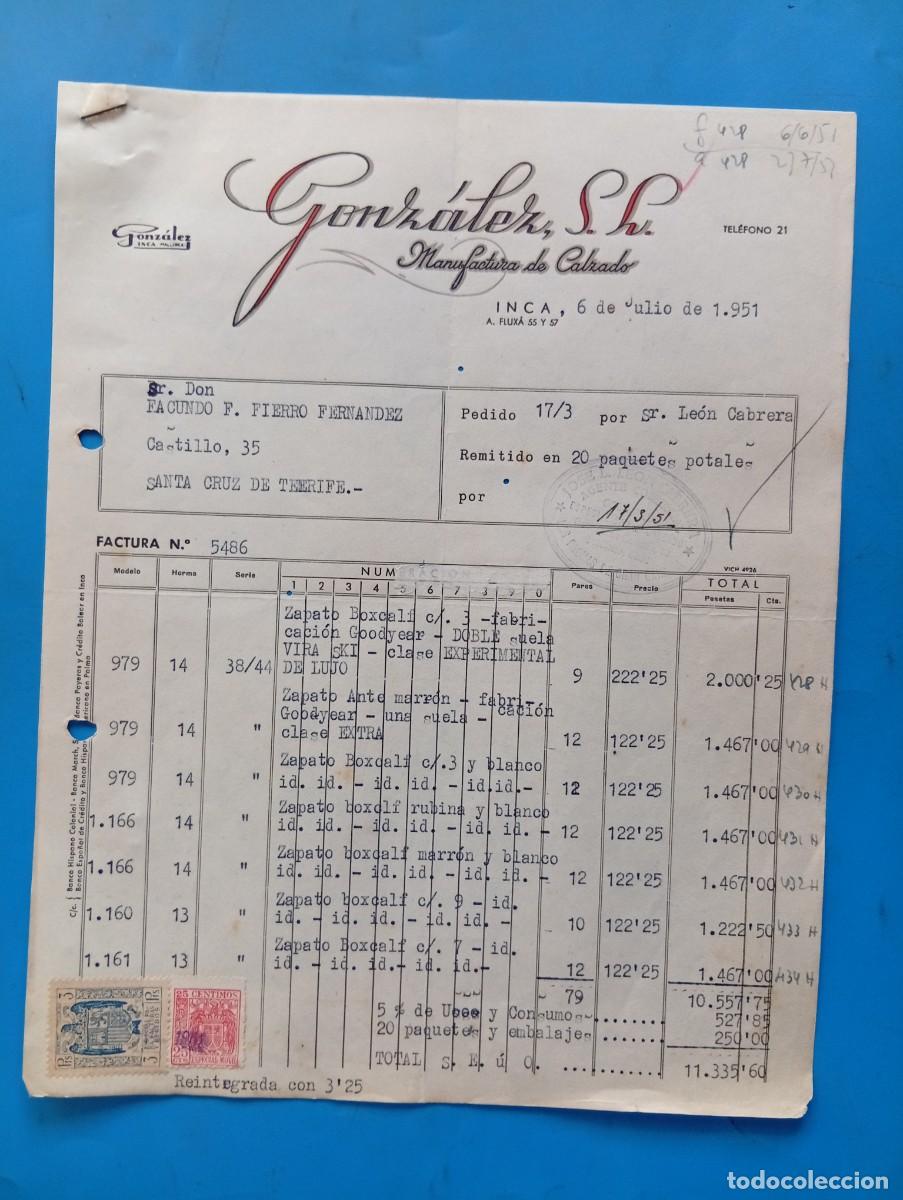 f 428 6/6/51
a 428 2/7/51
González, S. L.
González
INCA MALLORCA
TELÉFONO 21
Manufactura de Calzado
INCA, 6 de Julio de 1.951
A. FLUXÁ 55 Y 57
Sr. Don
FACUNDO F. FIERRO FERNANDEZ
Castillo, 35
SANTA CRUZ DE TEERIFE.-
Pedido 17/3 por Sr. León Cabrera
Remitido en 20 paquetes potales
por
17/3/51
FACTURA N.º 5486
VICH 4926
Modelo Horma Serie NUMERACION Pares Precio TOTAL
1 2 3 4 5 6 7 8 9 0 Pesetas Cts.
Zapato Boxcalf c/. 3 -fabri-
cación Goodyear - DOBLE suela
VIRA SKI - clase EXPERIMENTAL
979 14 38/44 DE LUJO 9 222'25 2.000'25 428 H
Zapato Ante marrón - fabri-
Goodyear - una suela - cación
979 14 " clase EXTRA 12 122'25 1.467'00 429 H
Zapato Boxcalf c/.3 y blanco
979 14 " id. id. - id. id. - id.id.- 12 122'25 1.467'00 430 H
Zapato boxclf rubina y blanco
1.166 14 " id. id. - id. id. - id. id. - 12 122'25 1.467'00 431 H
Zapato boxcalf marrón y blanco
1.166 14 " id. id. - id. id. - id. id. - 12 122'25 1.467'00 432 H
Zapato boxcalf c/. 9 - id.
1.160 13 " id. - id. id. - id. id. - 10 122'25 1.222'50 433 H
Zapato Boxcalf c/. 7 - id.
1.161 13 " id. - id. id.- id. id.- 12 122'25 1.467'00 434 H
79 10.557'75
5 % de Usos y Consumos-....... 527'85
20 paquetes y embalajes....... 250'00
TOTAL s. E. ú O. .......... 11.335'60
Reintegrada con 3'25
C/c. Banco Hispano Colonial - Banca March, S.
Banco Español de Crédito y Banco Hispano Americano en Palma
Banca Payeras y Crédito Balear en Inca
3 PTS
25 CENTIMOS
ESPECIAL MOVIL
todocoleccion